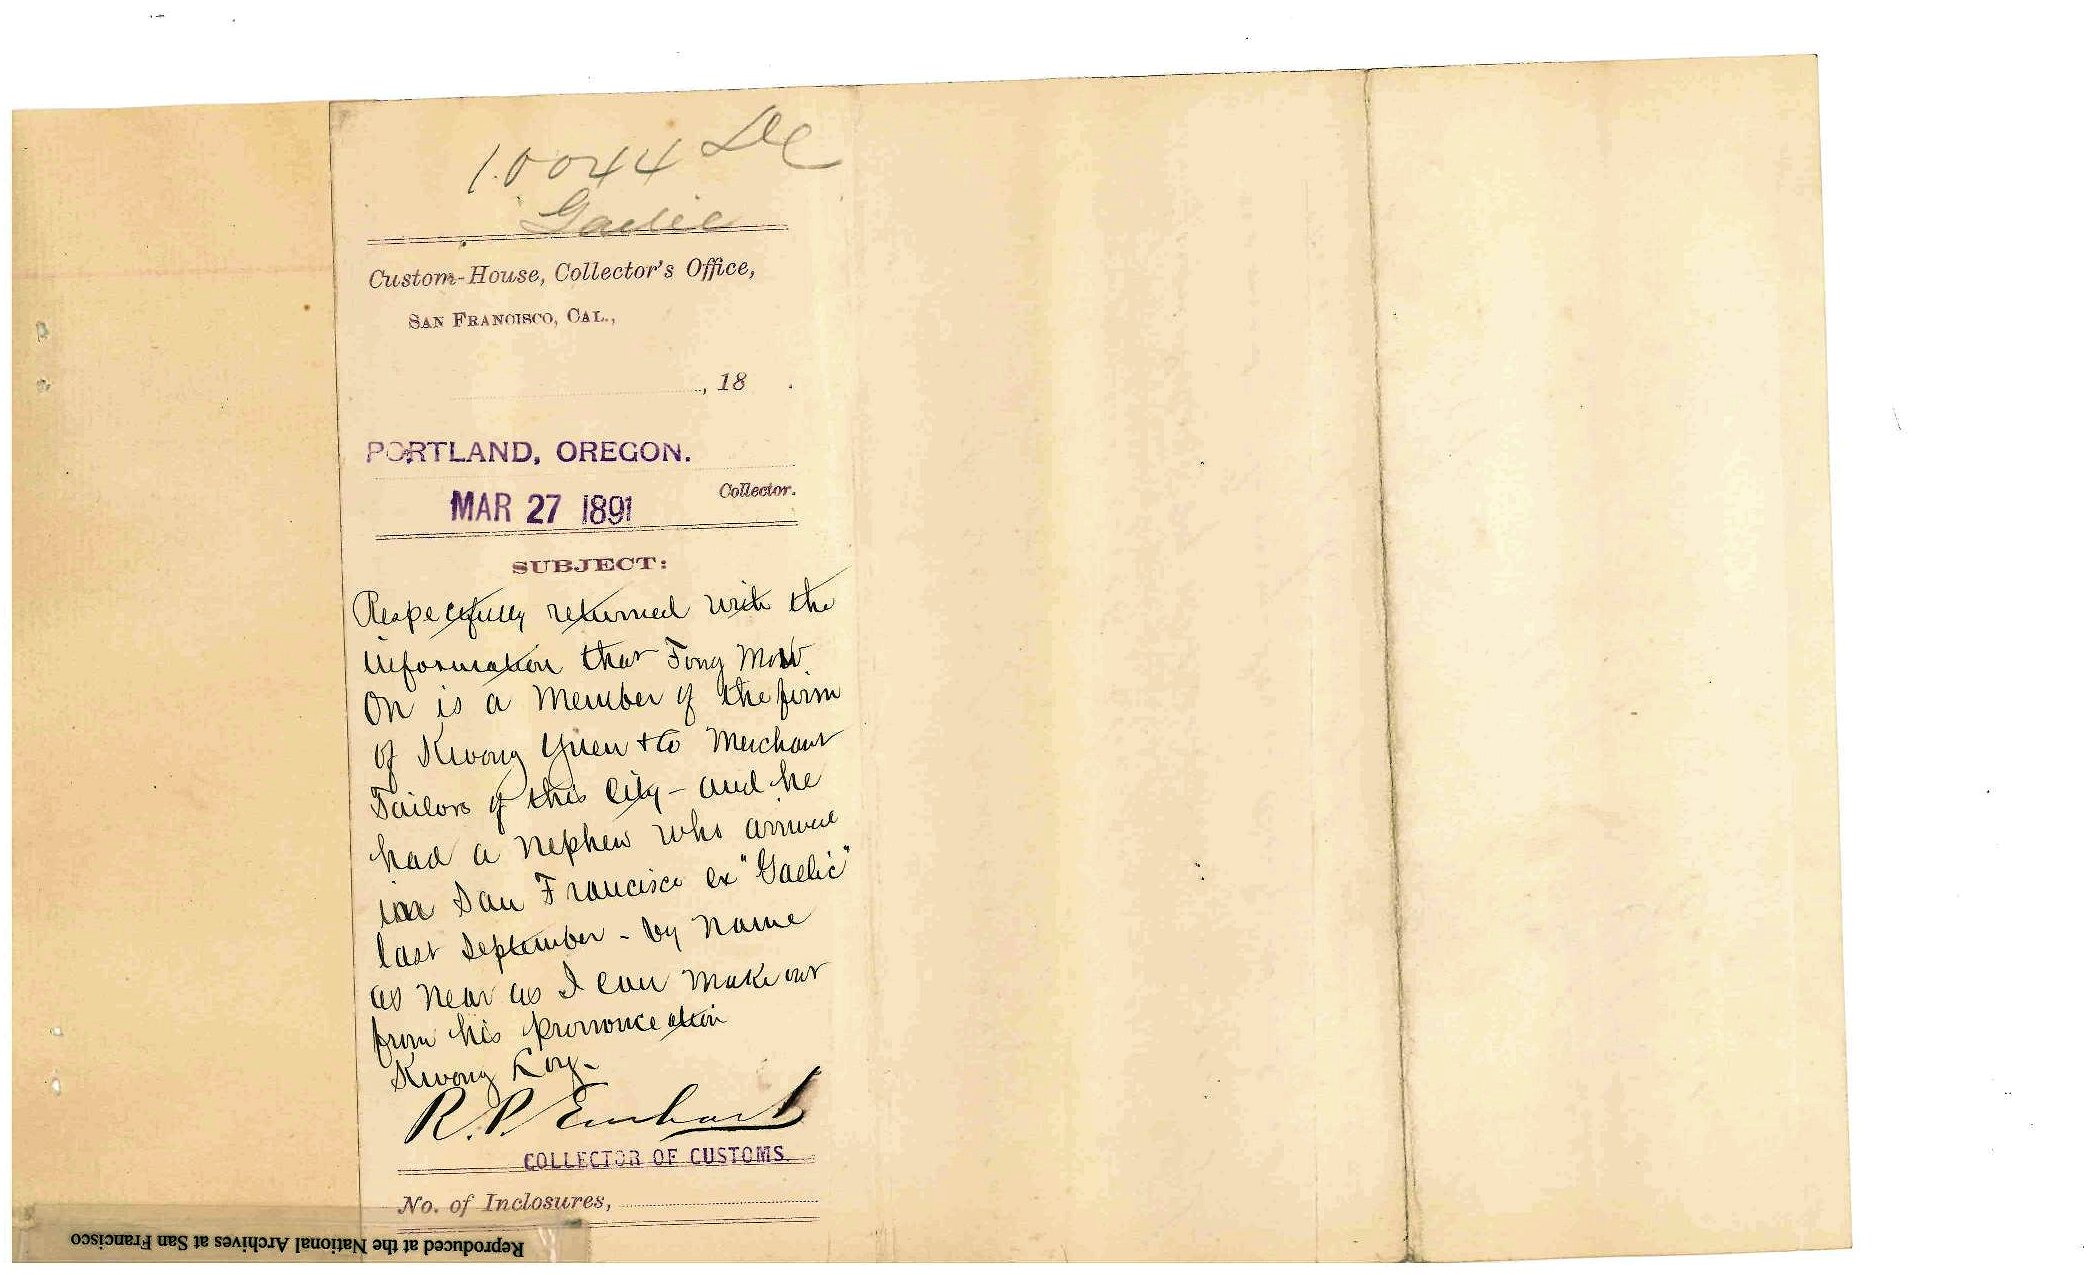 10044
Gaelic
Custom-House, Collector's Office,
SAN FRANCISCO, CAL.,
, 18 .
PORTLAND, OREGON.
Collector.
MAR 27 1891
SUBJECT:
Respectfully returned with the
information that Fong Mow
On is a Member of the firm
of Kwong Yuen & Co Merchant
Tailors of this City - and he
had a nephew who arrived
in San Francisco ex "Gaelic"
last September - by name
as near as I can make out
from his pronounceation
Kwong Loy -
R. P. Earhart
COLLECTOR OF CUSTOMS.
No. of Inclosures,
Reproduced at the National Archives at San Francisco